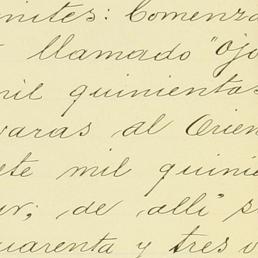 nites: Comenza
llamado "Ojo
mil quinientos
varas al Orien
ete mil quinie
ur; de alli" s
uarenta y tres v